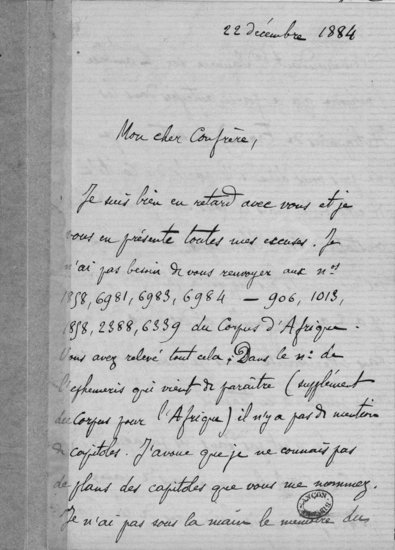 22 décembre 1884
Mon cher Confrère,
Je suis bien en retard avec vous et je
vous en présente toutes mes excuses. Je
n'ai pas besoin de vous renvoyer aux nos
1858, 6981, 6983, 6984 — 906, 1013,
1858, 2388, 6339 du Corpus d'Afrique.
Vous avez relevé tout cela; Dans le no. de
l'ephemeris qui vient de paraître (supplément
du Corpus pour l'Afrique) il n'y a pas de mention
de capitoles. J'avoue que je ne connais pas
de plans des capitoles que vous me nommez.
Je n'ai pas sous la main le mémoire du